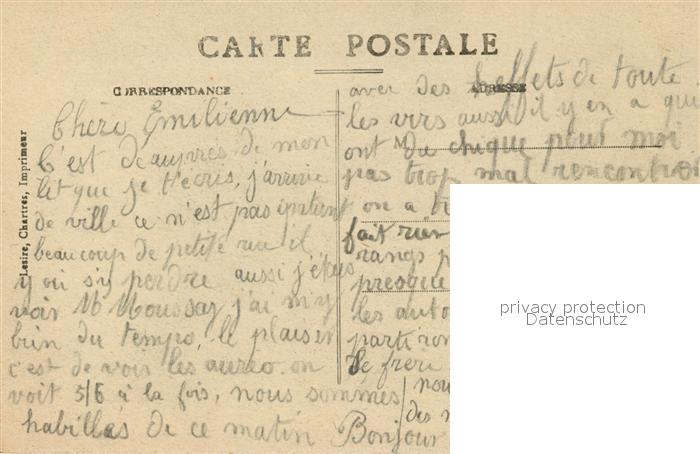 CARTE POSTALE
CORRESPONDANCE
ADRESSE
Lesire, Chartres, Imprimeur
Chère Emilienne
C'est de auprres de mon
lit que je t'ecris, j'arrive
de ville ce n'est pas
beaucoup de petite rue il
y où s'y perdre aussi j'étais
voir M Moussay j'ai m'y
bien du temps, le plaisir
c'est de voir les aureo on
voit 5/6 à la fois, nous sommes
habillés de ce matin
avec des effets de toute
les vers aussi il y en a qui
ont du chique pour moi
M
pas trop mal rencontrer
on a
fait rien
rangs
presque
les auto
partiron
le frère
nou
des
Bonjour
privacy protection
Datenschutz